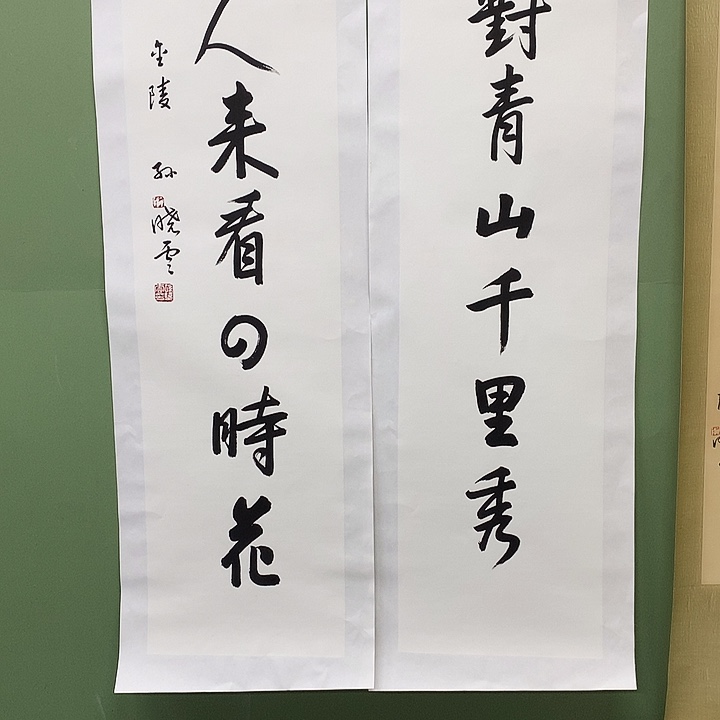 對青山千里秀
人来看四時花
金陵 孙晓云